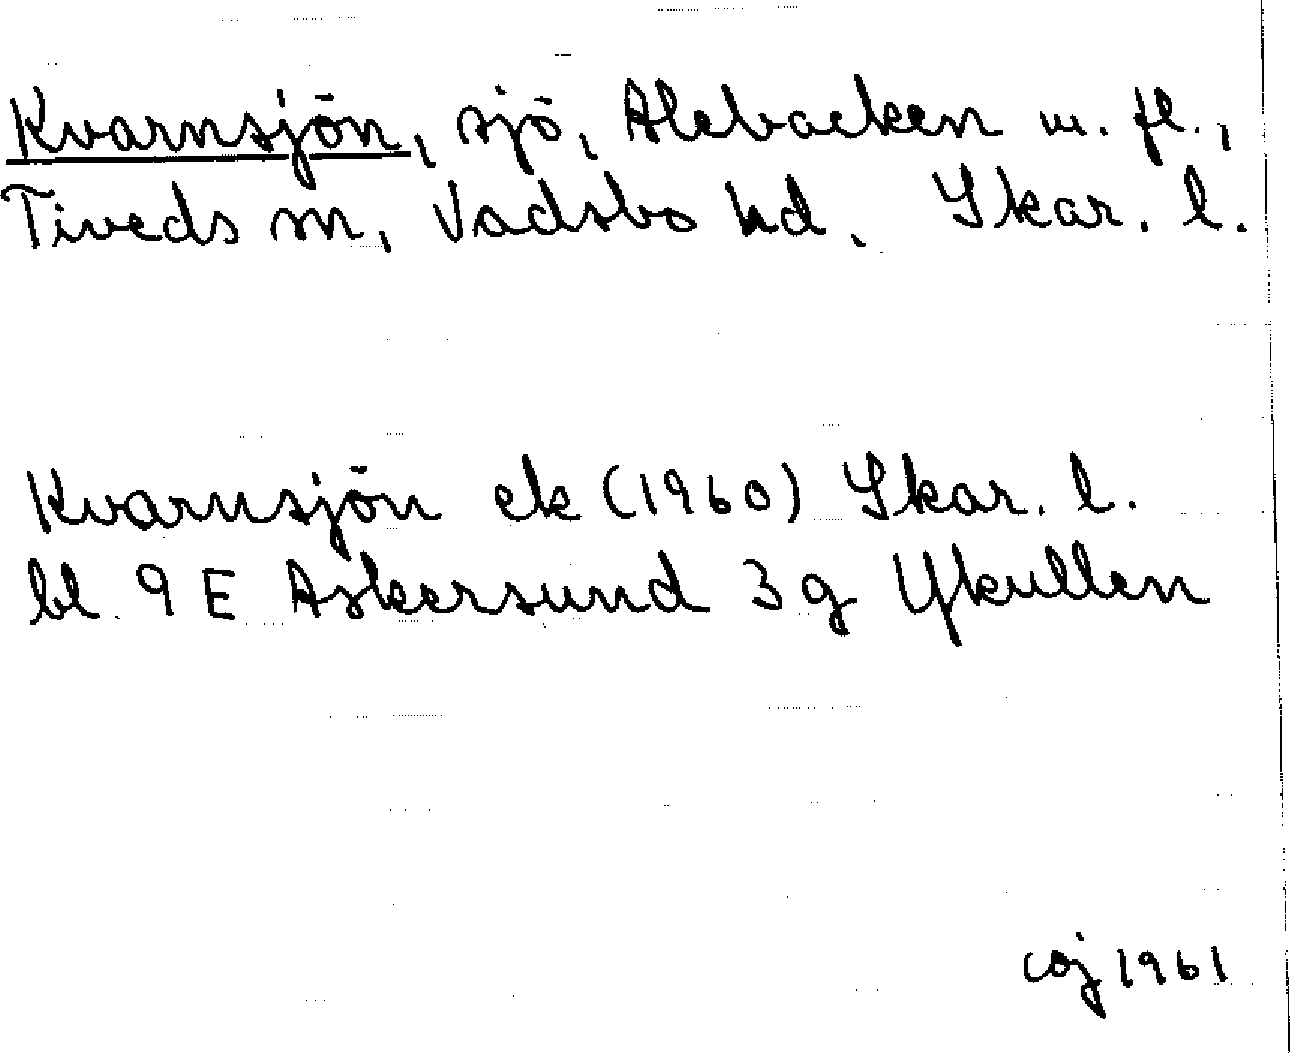 Kvarnsjön, sjö, Alebacken m. fl.,
Tiveds sn, Vadsbo hd, Skar. l.
Kvarnsjön ek (1960) Skar. l.
bl. 9 E Askersund 3 g Ykullen
coj 1961